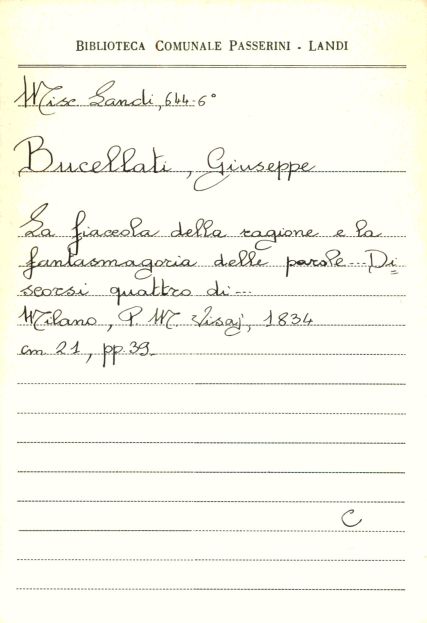 BIBLIOTECA COMUNALE PASSERINI - LANDI
Misc Landi, 644-6°
Bucellati, Giuseppe
La fiaccola della ragione e la
fantasmagoria delle parole... Di=
scorsi quattro di...
Milano, P. M. Visaj, 1834
cm 21, pp 39.
C